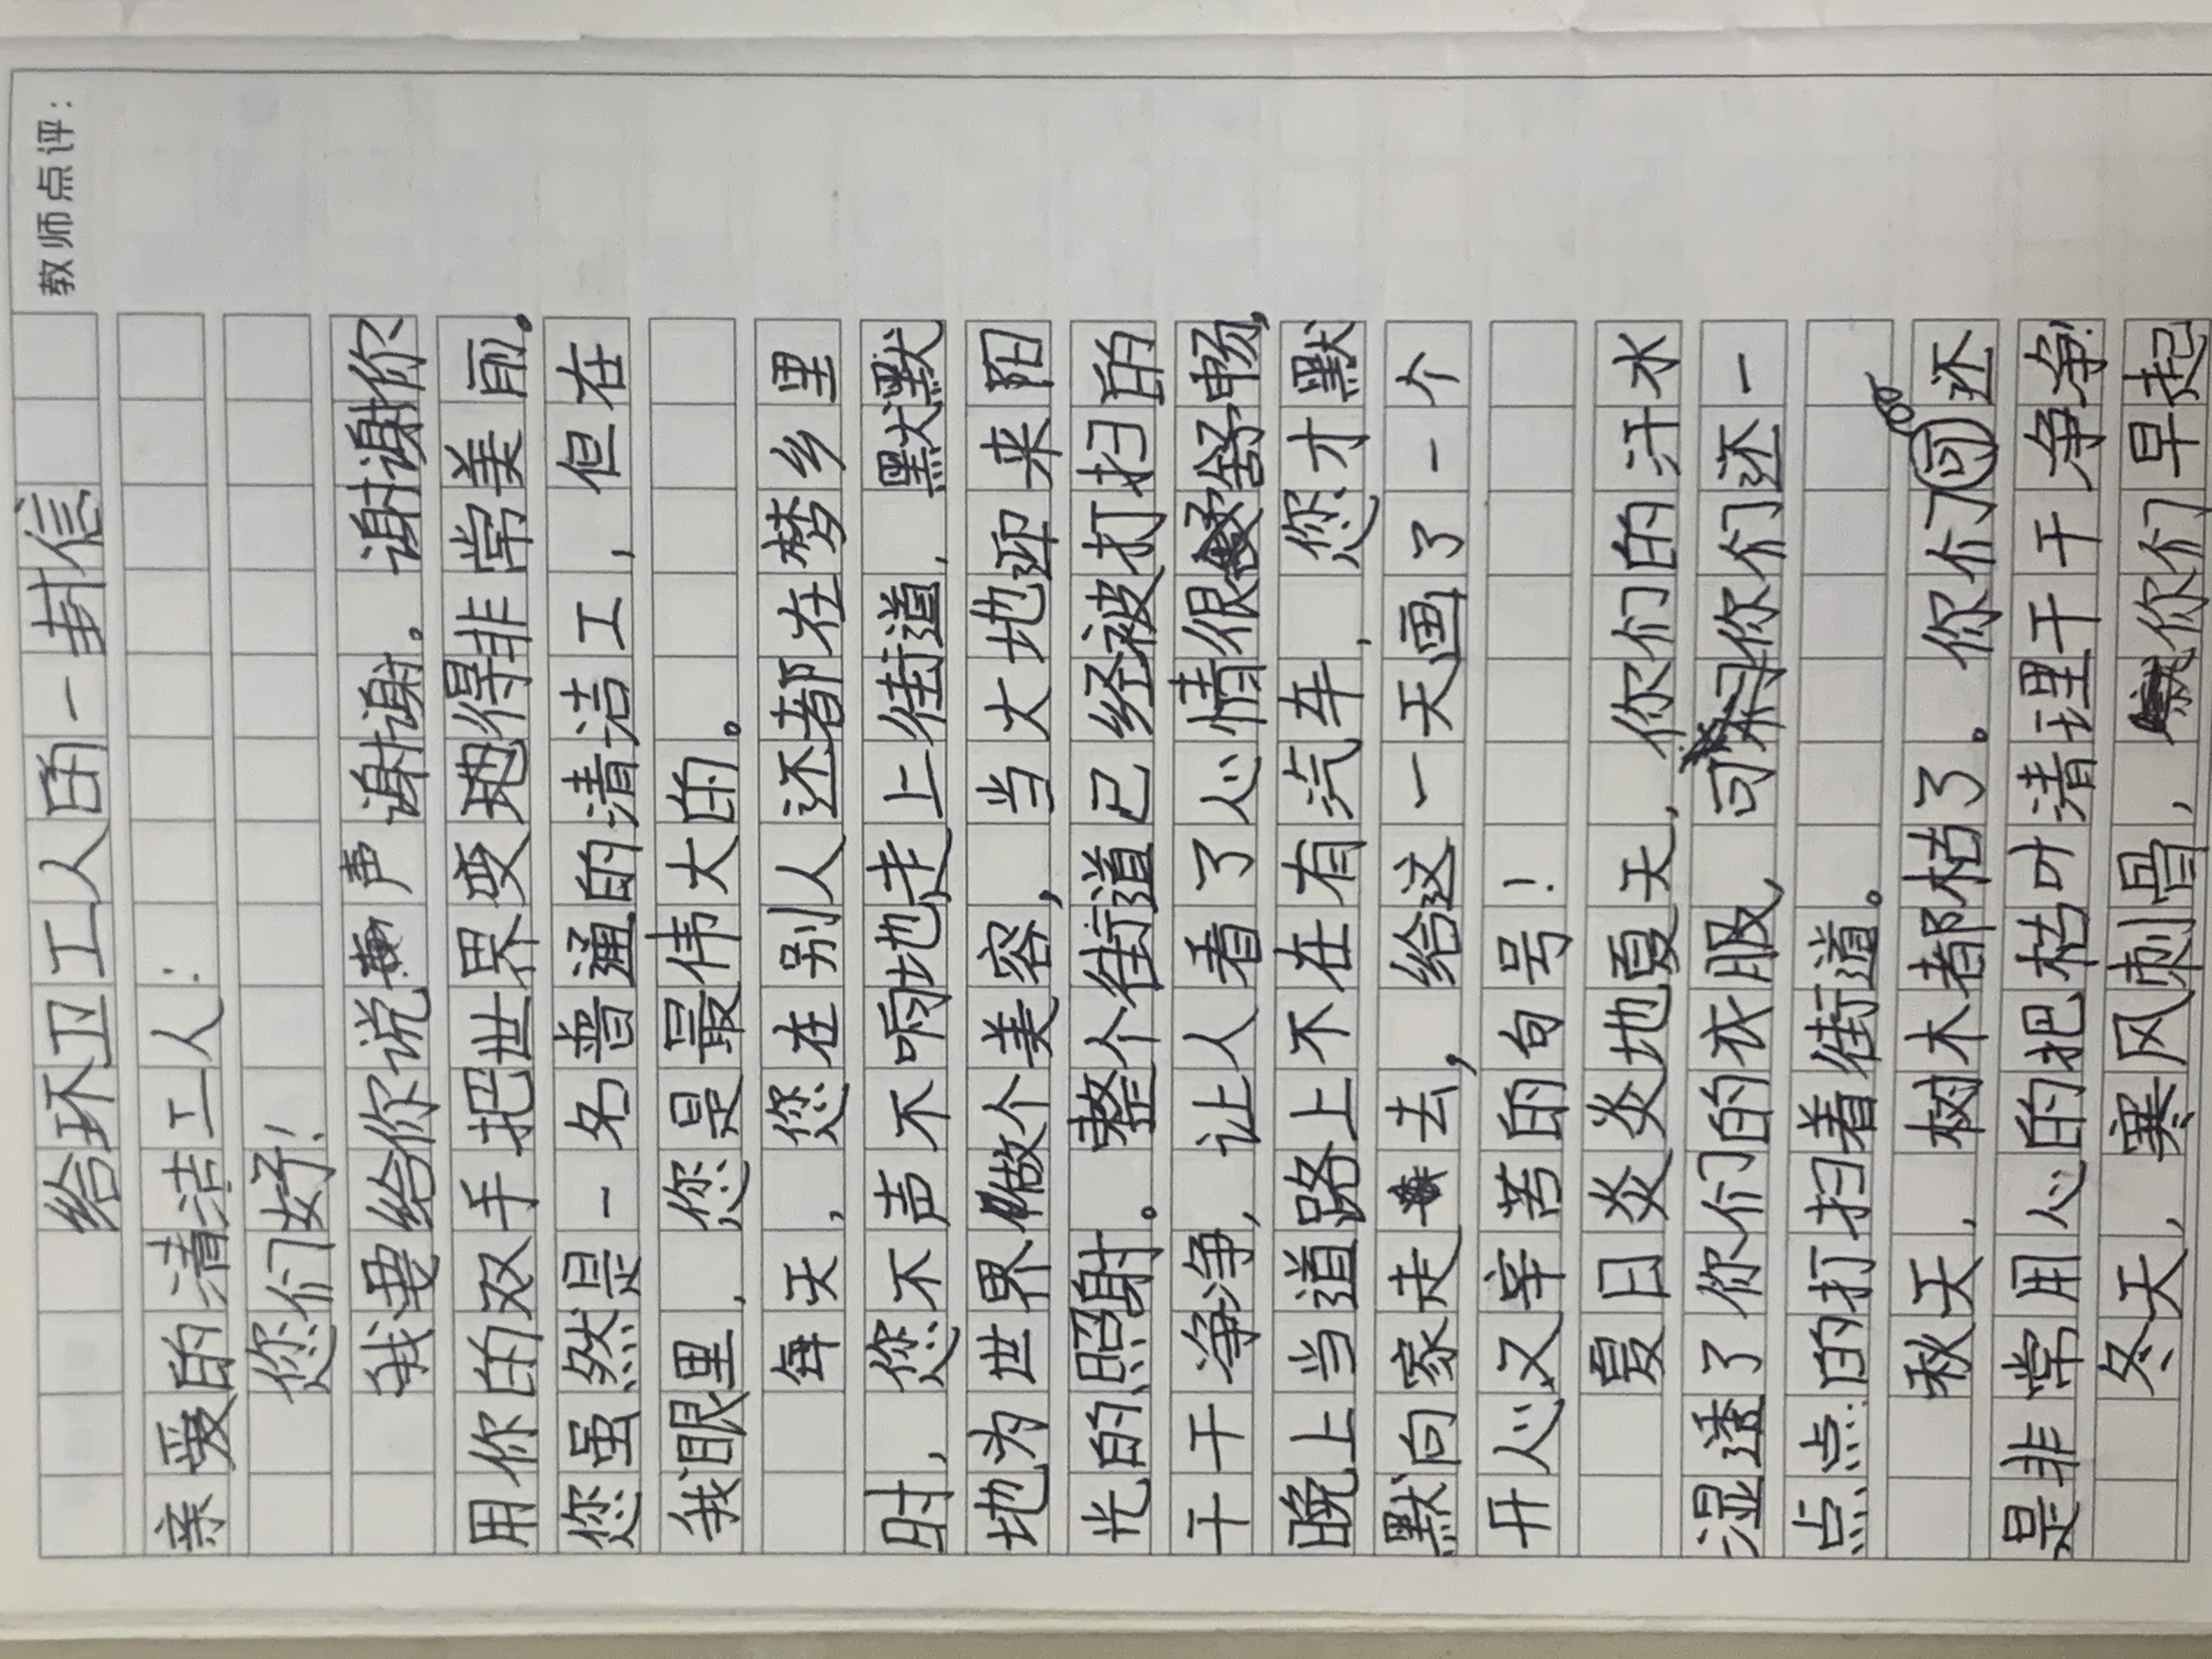 教师点评:
给环卫工人的一封信
亲爱的清洁工人:
您们好!
我要给你说声谢谢。谢谢你
用你的双手把世界变地得非常美丽。
您虽然是一名普通的清洁工,但在
我眼里,您是最伟大的。
每天,您在别人还都在梦乡里
时,您不声不响地走上街道,默默
地为世界做个美容,当大地迎来阳
光的照射。整个街道已经被打扫的
干干净净,让人看了心情很舒畅,
晚上当道路上不在有汽车,您才默
默向家走去,给这一天画了一个
开心又辛苦的句号!
夏日炎炎地夏天,你们的汗水
湿透了你们的衣服,可你们还一
点点的打扫着街道。
秋天,树木都枯了。你们还
是非常用心的把枯叶清理干干净净!
冬天,寒风刺骨,你们早起